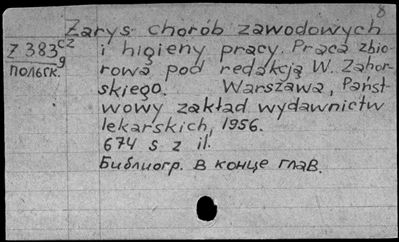 8
Zarys chorób zawodowych
Z 383 cz i higieny pracy. Praca zbio-
g
польск. rowa pod redakcją W. Zahor-
skiego. Warszawa, Państ-
wowy zakład wydawnictw
lekarskich, 1956.
674 s z il.
Библиогр. в конце глав.